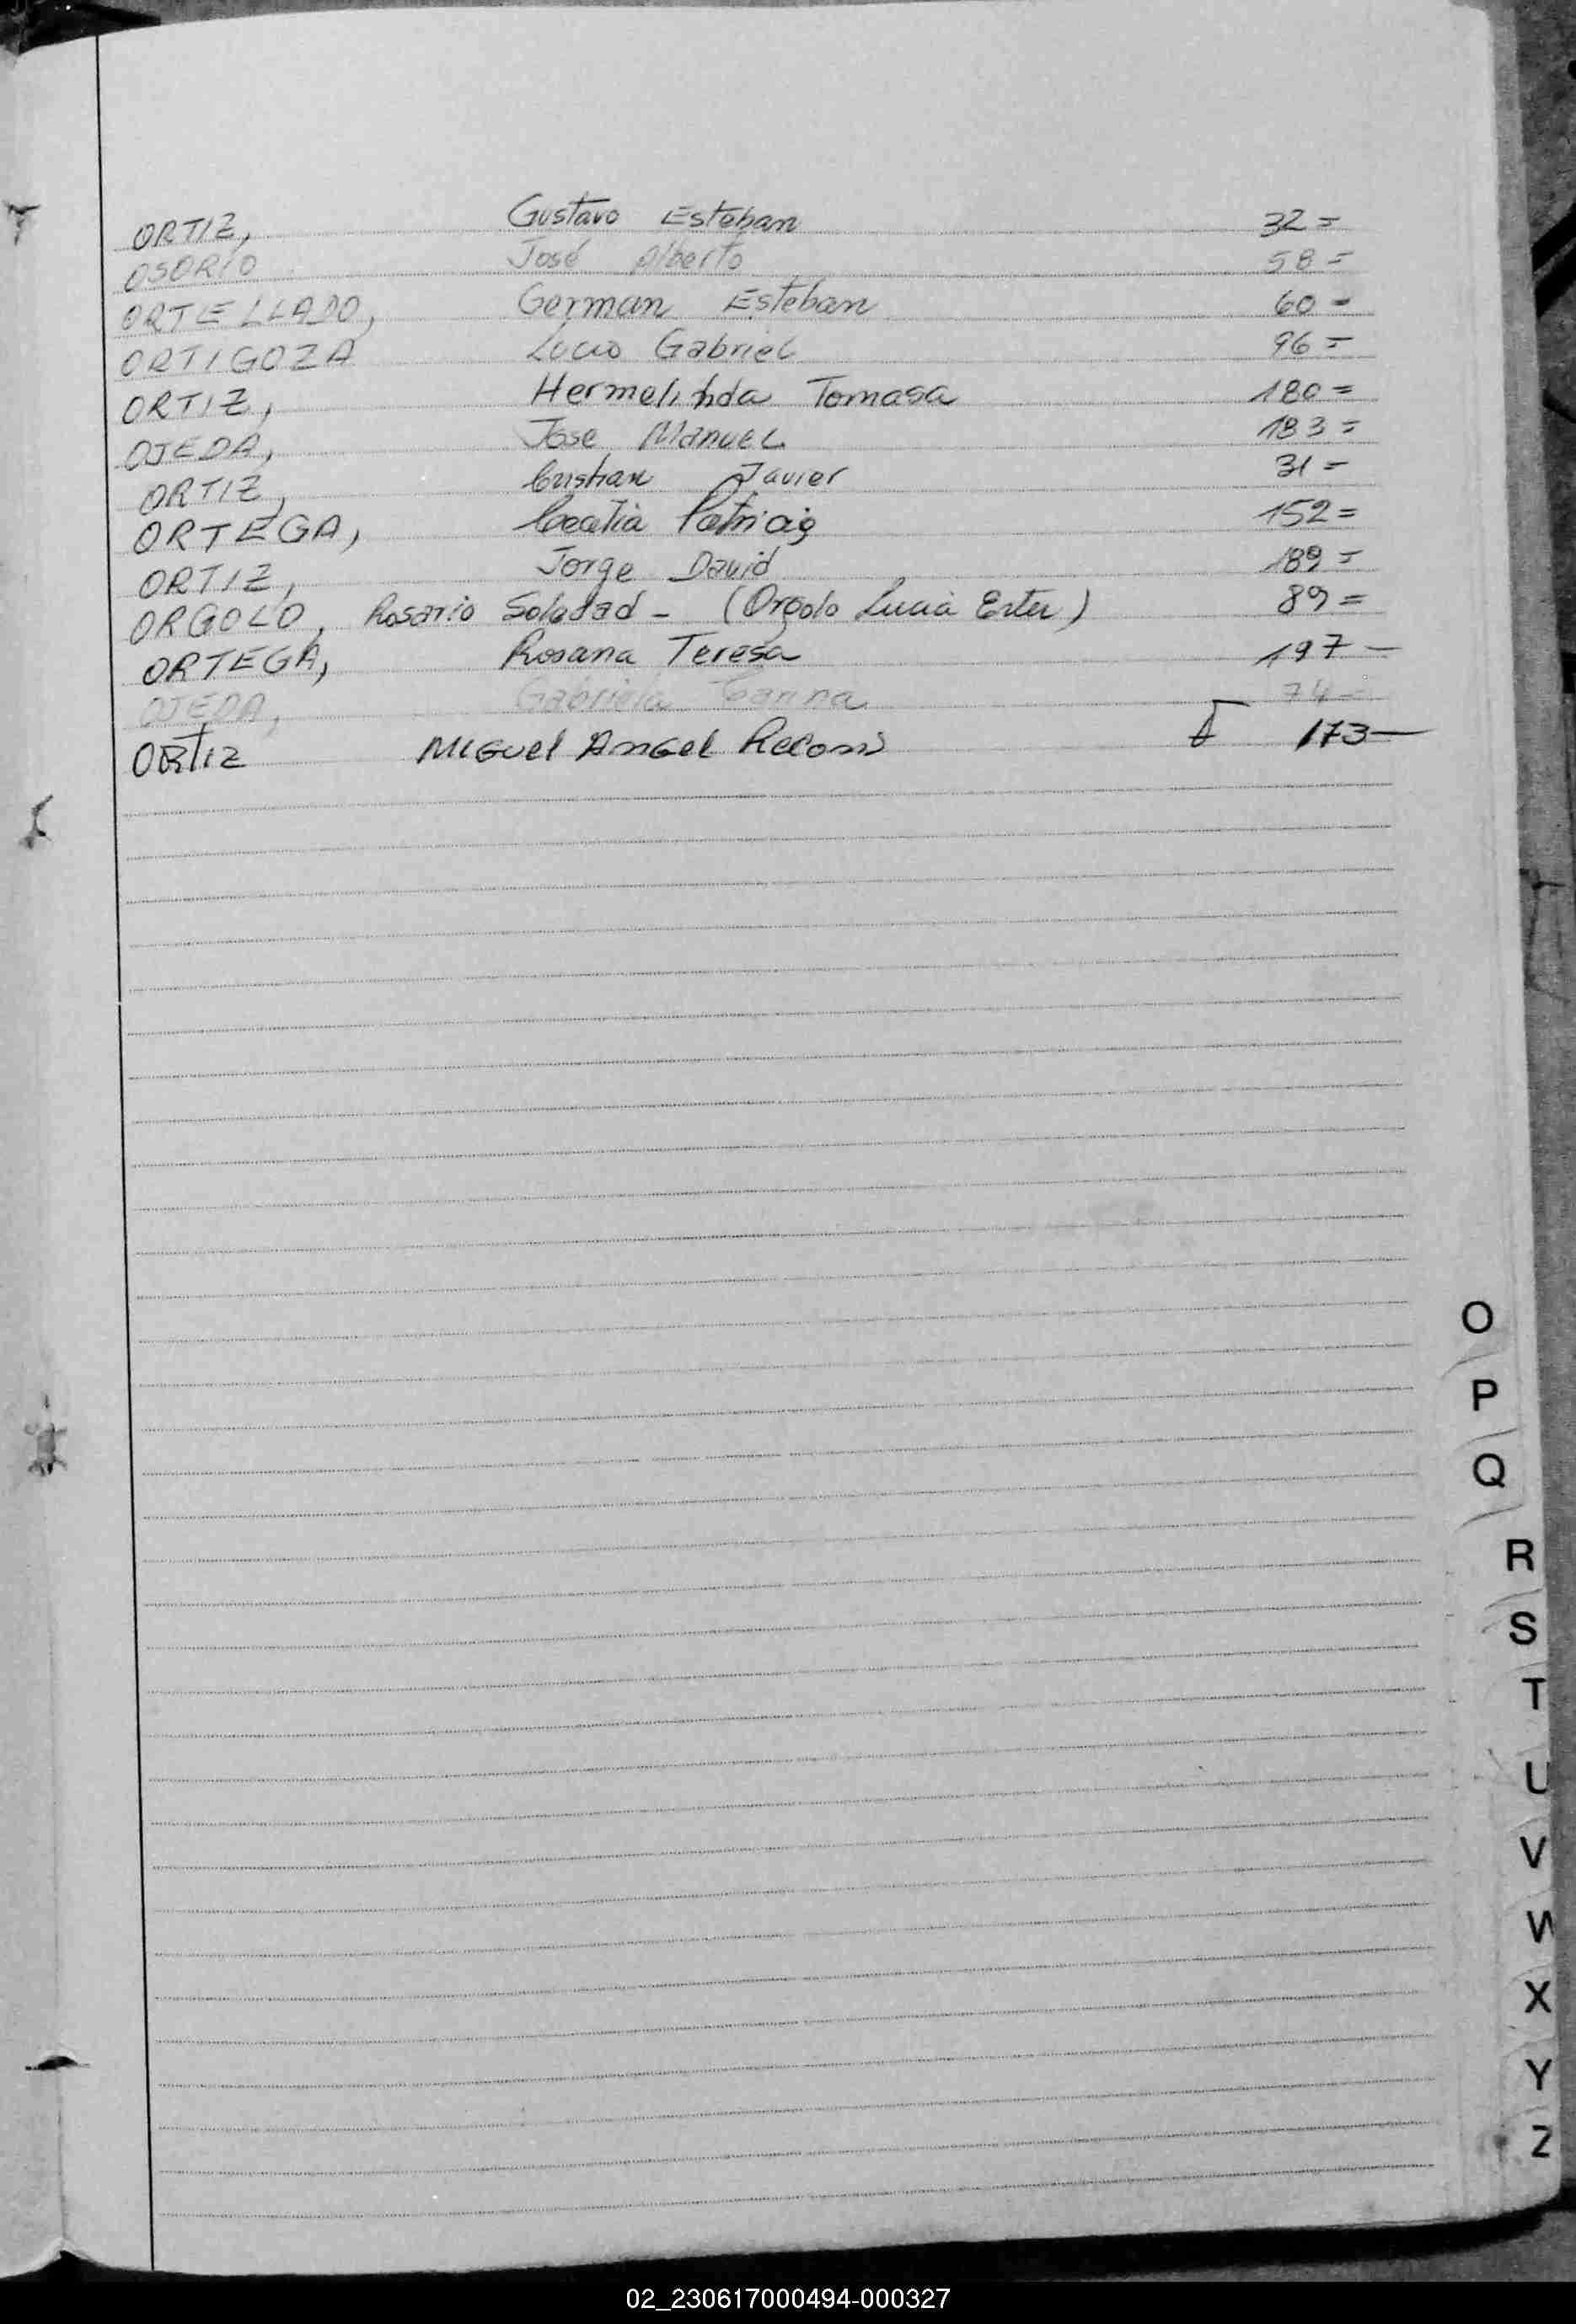 ORTIZ, Gustavo Esteban 32=
OSORIO José Alberto 58=
ORTELLADO, German Esteban 60=
ORTIGOZA Lucio Gabriel 96=
ORTIZ, Hermelinda Tomasa 180=
OJEDA, Jose Manuel 183=
ORTIZ, Cristian Javier 31=
ORTEGA, Cecilia Patricia 152=
ORTIZ, Jorge David 189=
ORGOLO, Rosario Soledad - (Orgolo Lucia Ester) 89=
ORTEGA, Rosana Teresa 197-
OJEDA, Gabriela Carina 74=
ORTIZ Miguel Angel 173-
O
P
Q
R
S
T
U
V
W
X
Y
Z
02_230617000494-000327